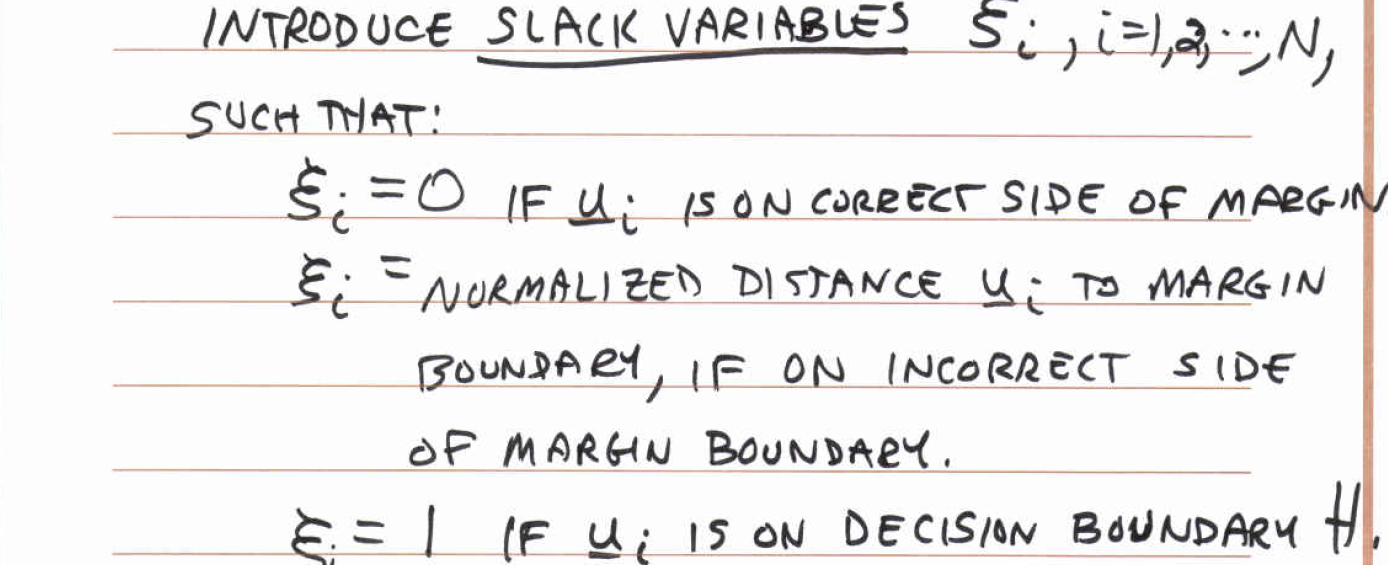 INTRODUCE SLACK VARIABLES ξi, i=1,2,...,N,
SUCH THAT:
ξi = 0 IF u̲i IS ON CORRECT SIDE OF MARGIN
ξi = NORMALIZED DISTANCE u̲i TO MARGIN
BOUNDARY, IF ON INCORRECT SIDE
OF MARGIN BOUNDARY.
ξi = 1 IF u̲i IS ON DECISION BOUNDARY H.